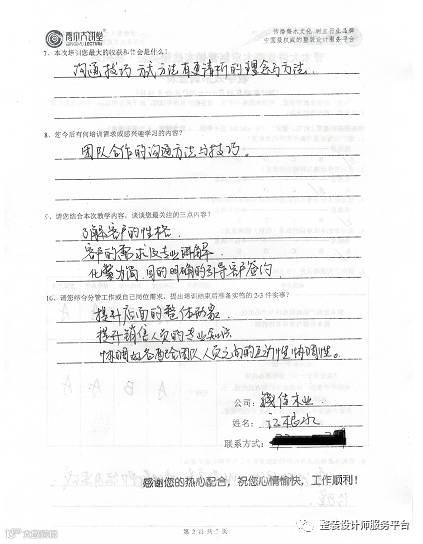 齐水大讲堂
传播齐水文化 树立百年品牌
中国最权威的整装设计服务平台
7、本次培训您最大的收获和体会是什么？
沟通技巧 方式方法有更清晰的理念与方法.
8、您今后有何培训需求或感兴趣学习的内容？
团队合作的沟通方法与技巧。
9、请您结合本次教学内容，谈谈您最关注的三点内容？
了解客户的性格.
客户的需求及专业讲解.
化繁为简 目的明确的引导客户签约.
10、请您结合分管工作或自己岗位需求，提出培训结束后准备实践的2-3件实事？
提升店面的整体形象.
提升销售人员的专业知识
公司：
姓名：江根水
联系方式：
感谢您的热心配合，祝您心情愉快，工作顺利！
第 2 页 共 2 页
整装设计师服务平台